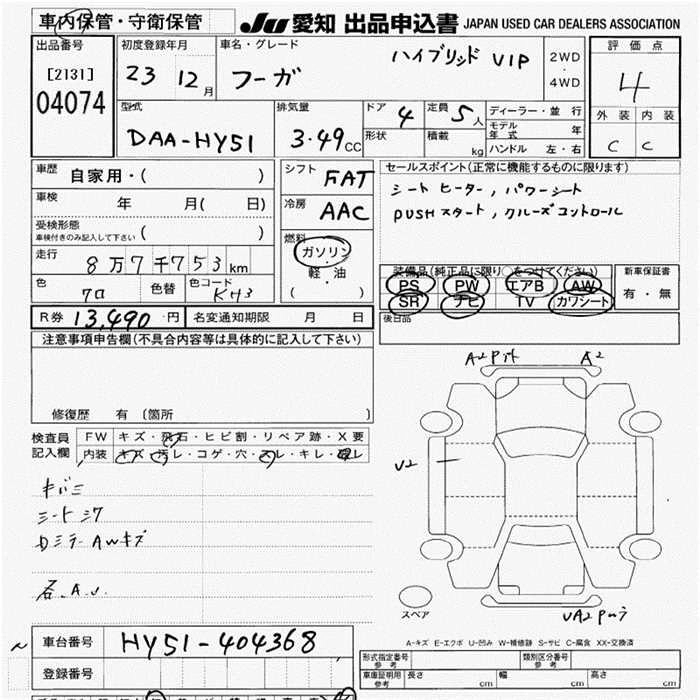 車内保管・守衛保管
JU 愛知 出品申込書 JAPAN USED CAR DEALERS ASSOCIATION
出品番号
[2131]
04074
初度登録年月
23 12月
車名・グレード
ハイブリッド VIP
フーガ
2WD
・
4WD
評価点
4
外装 内装
C C
型式
DAA-HY51
排気量
3.49CC
ドア 4
形状
定員 5人
積載 kg
ディーラー・並行
モデル年式 年
ハンドル 左・右
車歴 自家用・( )
車検 年 月( 日)
受検形態
車検付きのみ記入して下さい ( )
走行 8万7千753km
色 クロ 色替 色コード KH3
シフト FAT
冷房 AAC
燃料
ガソリン
・
軽・油
( )
セールスポイント(正常に機能するものに限ります)
シートヒーター, パワーシート
PUSHスタート, クルーズコントロール
装備品(純正品に限り○をつけてください)
PS PW エアB AW
SR ナビ TV カワシート
新車保証書
有・無
後日品
R券 13,490円 名変通知期限 月 日
注意事項申告欄(不具合内容等は具体的に記入して下さい)
修復歴 有 〔箇所 〕
検査員
記入欄
FW キズ・飛石・ヒビ割・リペア跡・X要
内装 キズ・汚レ・コゲ・穴・スレ・キレ
キバミ
シートシワ
Dミラー AWキズ
各.A.U.
A2 A2
U2
スペア
UA2
A-キズ E-エクボ U-凹み W-補修跡 S-サビ C-腐食 XX-交換済
~ 車台番号 HY51-404368
登録番号
形式指定番号
参考
類別区分番号
参考
車庫証明用
参考
長さ cm 幅 cm 高さ cm